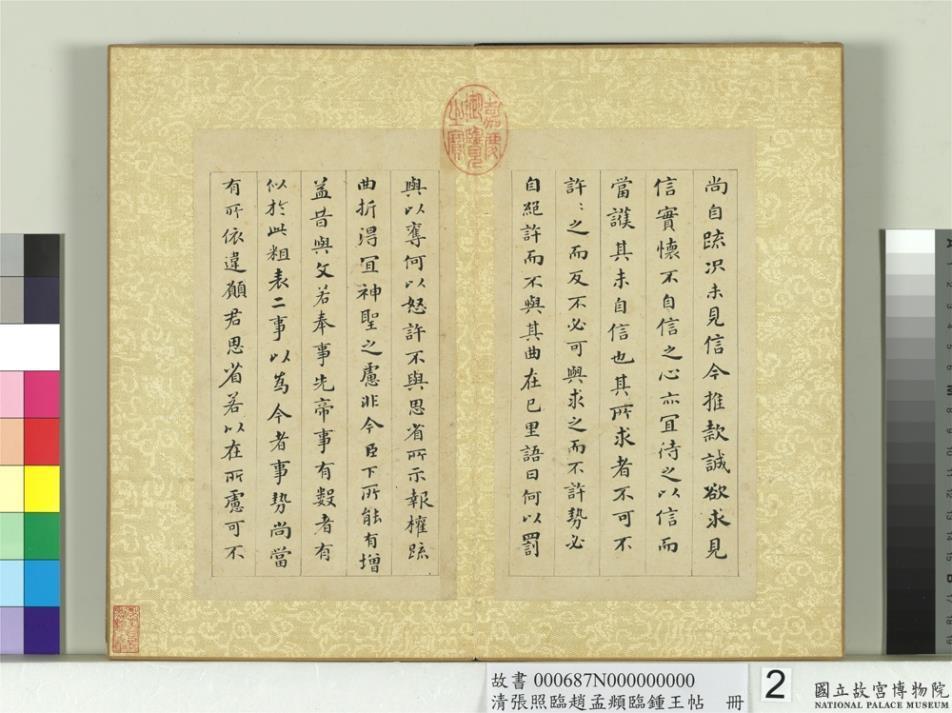 尚自疏況未見信今推款誠欲求見
信實懷不自信之心亦冝待之以信而
當護其未自信也其所求者不可不
許〻之而反不必可與求之而不許勢必
自絕許而不與其曲在己里語曰何以罰
與以奪何以怒許不與思省所示報權疏
曲折淂冝神聖之慮非今臣下所能有增
益昔與文若奉事先帝事有數者有
似於此粗表二事以為今者事勢尚當
有所依違願君思省若以在所慮可不
嘉慶御覽之寶
故書 000687N000000000
清張照臨趙孟頫臨鍾王帖 冊
2
國立故宮博物院
NATIONAL PALACE MUSEUM